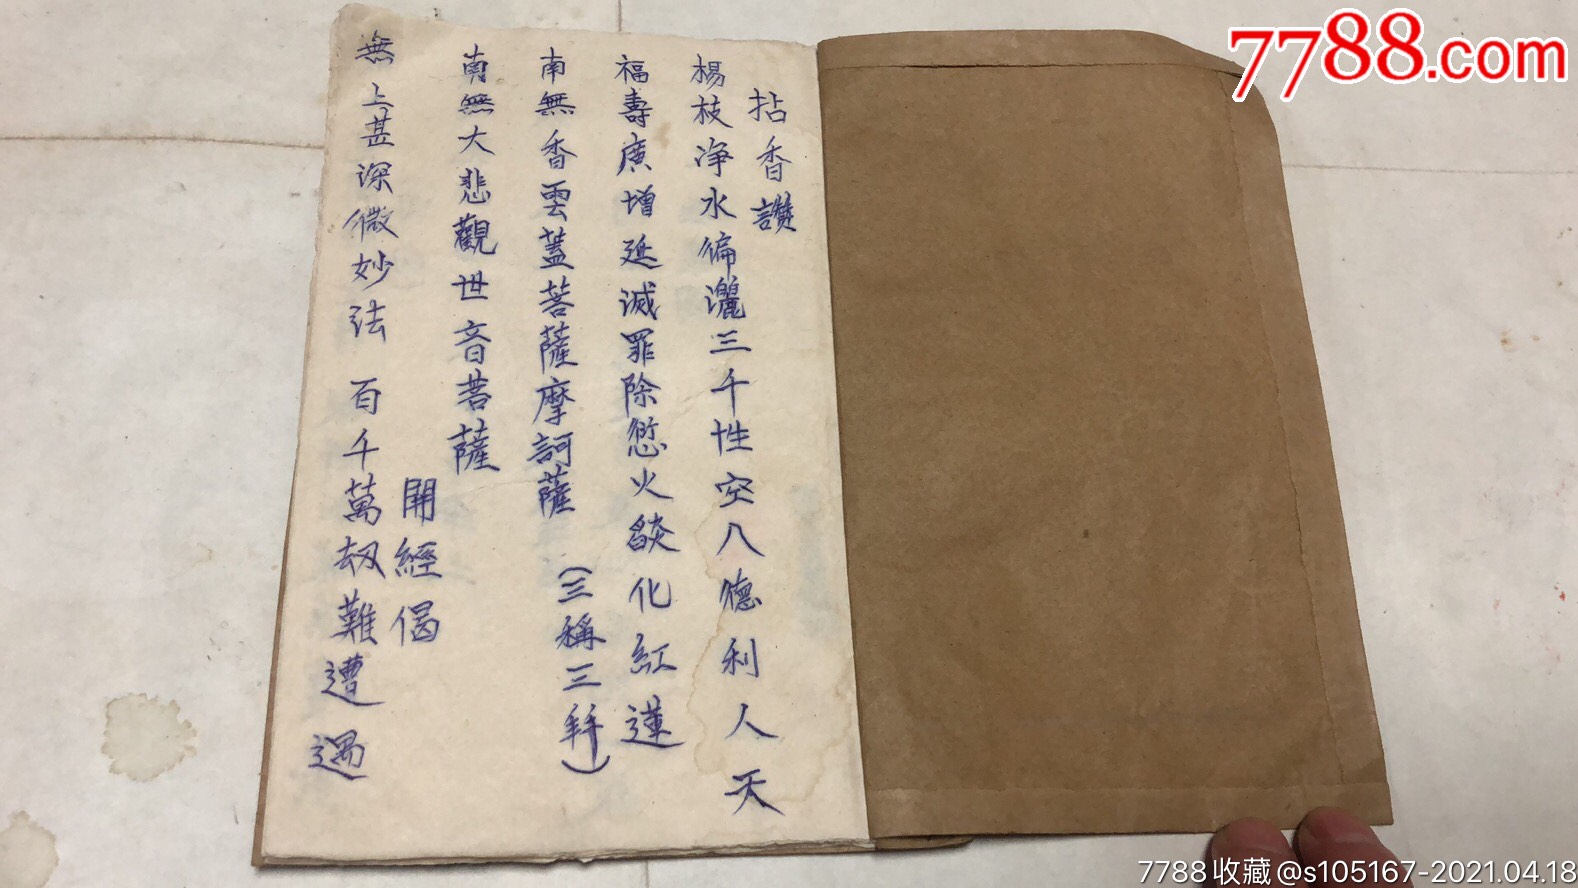 拈香讚
楊枝净水徧灑三千性空八德利人天
福壽廣增延滅罪除愆火燄化紅蓮
南無香雲蓋菩薩摩訶薩 (三稱三拜)
南無大悲觀世音菩薩
開經偈
無上甚深微妙法 百千萬刼難遭遇
7788.com
7788收藏@s105167-2021.04.18